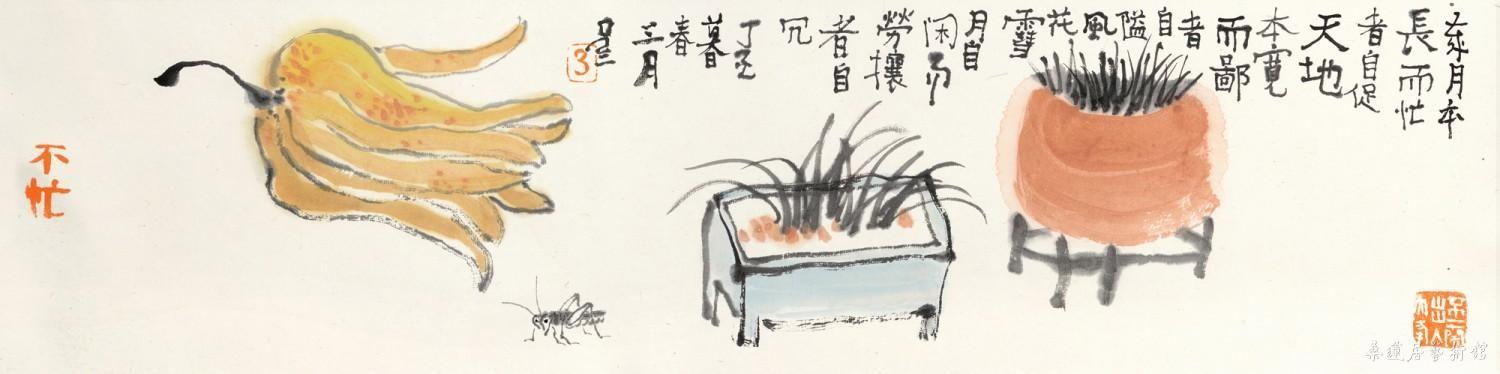 歲月本
長而忙
者自促
天地
本寬
而鄙
者
自
隘
風
花
雪
月自
闲而
勞攘
者自
冗
丁亥
暮
春
三月
3
不忙
桑蓮居藝術馆